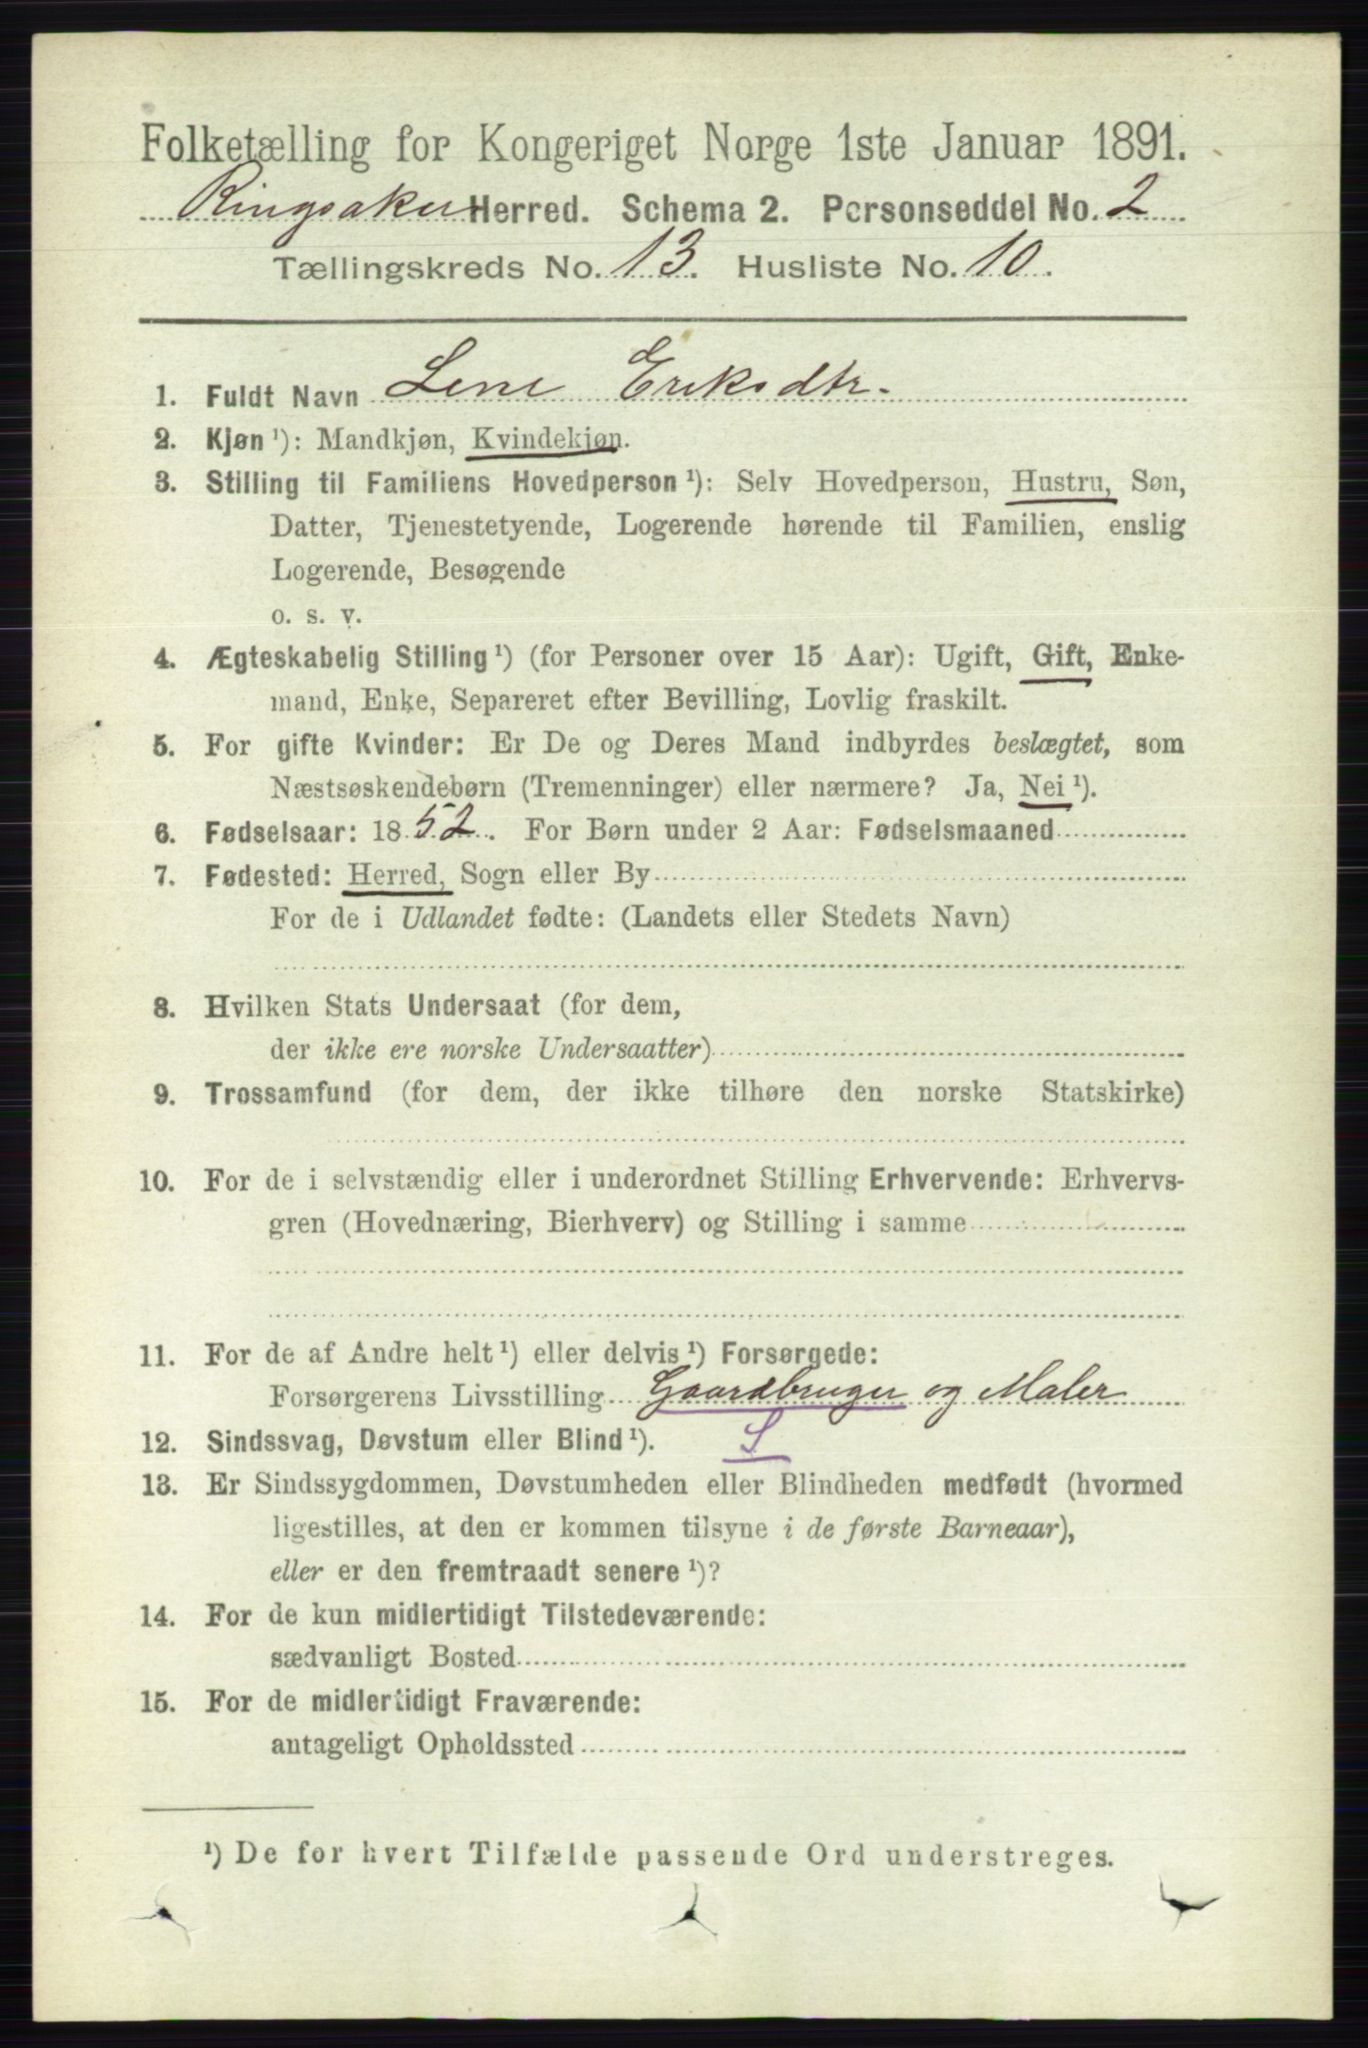 Folketælling for Kongeriget Norge 1ste Januar 1891.
Ringsaker Herred. Schema 2. Personseddel No. 2
Tællingskreds No. 13. Husliste No. 10.
1. Fuldt Navn Lene Eriksdtr.
2. Kjøn ¹): Mandkjøn, Kvindekjøn.
3. Stilling til Familiens Hovedperson ¹): Selv Hovedperson, Hustru, Søn,
Datter, Tjenestetyende, Logerende hørende til Familien, enslig
Logerende, Besøgende
o. s. v.
4. Ægteskabelig Stilling ¹) (for Personer over 15 Aar): Ugift, Gift, Enke-
mand, Enke, Separeret efter Bevilling, Lovlig fraskilt.
5. For gifte Kvinder: Er De og Deres Mand indbyrdes beslægtet, som
Næstsøskendebørn (Tremenninger) eller nærmere? Ja, Nei ¹).
6. Fødselsaar: 1852. For Børn under 2 Aar: Fødselsmaaned
7. Fødested: Herred, Sogn eller By
For de i Udlandet fødte: (Landets eller Stedets Navn)
8. Hvilken Stats Undersaat (for dem,
der ikke ere norske Undersaatter)
9. Trossamfund (for dem, der ikke tilhøre den norske Statskirke)
10. For de i selvstændig eller i underordnet Stilling Erhvervende: Erhvervs-
gren (Hovednæring, Bierhverv) og Stilling i samme
11. For de af Andre helt ¹) eller delvis ¹) Forsørgede:
Forsørgerens Livsstilling Gaardbruger og Maler
12. Sindssvag, Døvstum eller Blind ¹). S
13. Er Sindssygdommen, Døvstumheden eller Blindheden medfødt (hvormed
ligestilles, at den er kommen tilsyne i de første Barneaar),
eller er den fremtraadt senere ¹)?
14. For de kun midlertidigt Tilstedeværende:
sædvanligt Bosted
15. For de midlertidigt Fraværende:
antageligt Opholdssted
¹) De for hvert Tilfælde passende Ord understreges.